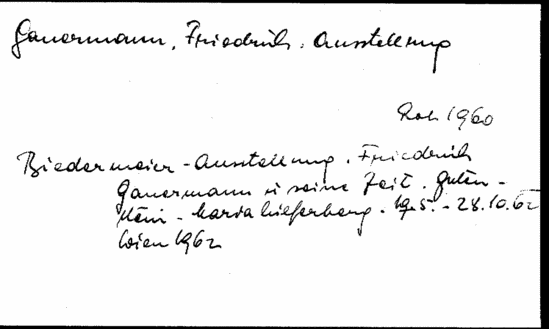 Gauermann, Friedrich: Ausstellung
Kat. 1960
Biedermeier-Ausstellung. Friedrich
Gauermann u seine Zeit. Guten-
stein-Mariahilferberg. 19.5. - 28.10.62
Wien 1962